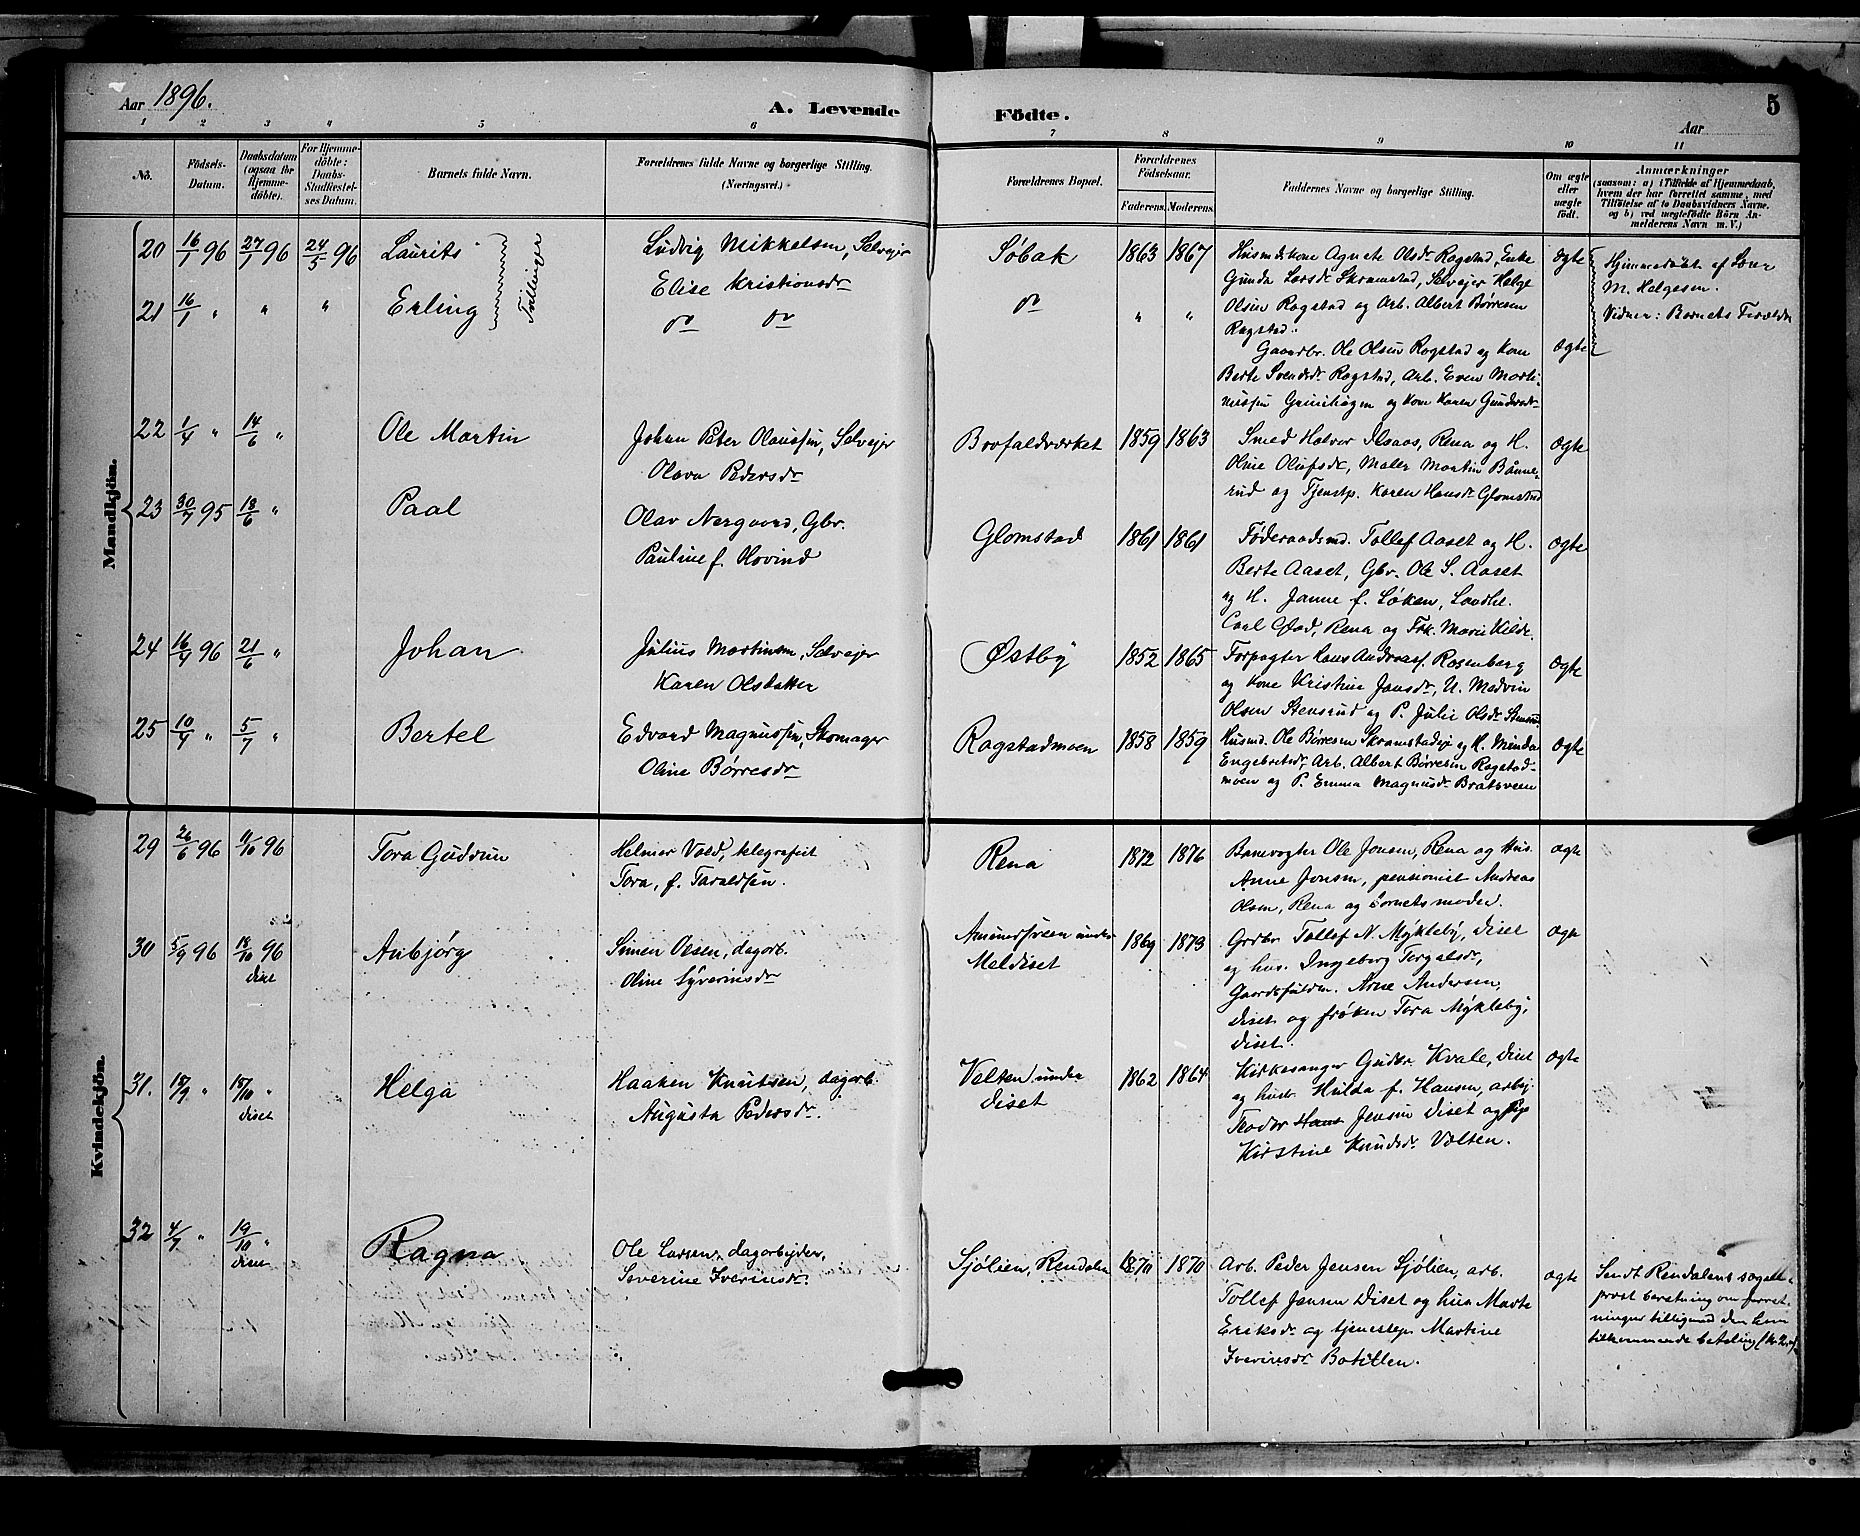 Aar 1896.
A. Levende Födte.
5
Aar
1 2 3 4 5 6 7 8 9 10 11
No.
Födsels-Datum.
Daabsdatum (ogsaa for Hjemme-döbte).
For Hjemme-döbte: Daabs-Stadfæstel-ses Datum.
Barnets fulde Navn.
Forældrenes fulde Navne og borgerlige Stilling. (Næringsvei.)
Forældrenes Bopæl.
Forældrenes Födselsaar.
Faderens. Moderens.
Faddernes Navne og borgerlige Stilling.
Om ægte eller uægte født.
Anmærkninger
(saasom: a) i Tilfælde af Hjemmedaab, hvem der har forrettet samme, med Tilföielse af to Daabsvidners Navne, og b) ved uægtefödte Börn An-melderens Navn m. V.)
Mandkjön.
20 16/1 96 27/1 96 24/5 96 Laurits
Tvillinger
Ludvig Mikkelsen, Selveier
Elise Kristiansdr
Søbak 1863 1867
Husmdskone Agnete Olsdr Rogstad, Enke
Gunda Larsdr Skramstad, Selveier Helge
Olsen Rogstad og Arb. Albert Børresen
Rogstad.
ægte
Hjemmedøbt af Lars
M. Helgesen.
Vidner: Barnets Forældre
21 16/1 " " " Erling
do do
do " "
Gaardbr. Ole Olsen Rogstad og Kone
Berte Svendsdr Rogstad, Arb. Even Marti-
nussen Grinihagen og Kone Karen Gundersdr
ægte
22 1/4 " 14/6 " Ole Martin
Johan Peter Olaussen, Selveier
Olava Pedersdr
Brofaldværket 1859 1863
Smed Halvor Ilsaas, Rena og H.
Oline Olufsdr, Maler Martin Bånne-
rud og Tjenstp. Karen Hansdr Glomstad
ægte
23 30/7 95 18/6 " Paal
Olav Nergaard, Gbr.
Pauline f. Hovind
Glomstad 1861 1861
Føderaadsmd. Tollef Aaset og H.
Berte Aaset, Gbr. Ole S. Aaset
og H. Janne f. Løken, Landhl.
Carl Ofstad, Rena og Frk. Marie Kilde.
ægte
24 16/4 96 21/6 " Johan
Julius Martinsen, Selveier
Karen Olsdatter
Østby 1852 1865
Forpagter Hans Andreas. Rosenberg
og Kone Kristine Jonsdr, U. Medvin
Olsen Stensrud og P. Julie Olsdr Stensrud
ægte
25 10/4 " 5/7 " Bertel
Edvard Magnussen, Skomager
Oline Børresdr
Rogstadmoen 1858 1859
Husmd. Ole Børresen Skramstadeje og H. Minda
Engebretsdr, Arb. Albert Børresen Rogstad-
moen og P. Emma Magnusdr Bratsveen
ægte
Kvindekjön.
29 26/6 96 11/10 96 Tora Gudrun
Helmer Vold, telegrafist
Tora, f. Taraldsen.
Rena 1872 1876
Banevogter Ole Jonsen, Rena og Hus.
Anne Jonsen, pensionist Andreas
Olsen, Rena og barnets moder.
ægte
30 5/9 96 18/10 96 diset Anbjørg
Simen Olsen, dagarb.
Oline Syverinsdr
under
Meldiset 1869 1873
Grdbr Tollef N. Mykleby, diset
og hus. Ingeborg Torgalsdr,
Gaardsfuldm. Arne Andersen,
diset og frøken Tora Mykleby,
diset.
ægte
31. 15/9 " 18/10 " diset Helga
Haaken Knutsen, dagarb.
Augusta Pedersdr.
Velten under
diset 1862 1864
Kirkesanger Gudbr Kvale, diset
og hustr. Hulda f. Hansen, arbej.
Teodor Hans Jensen Diset og Pige
Kirstine Knudsdr Velten.
ægte
32 4/7 " 19/10 " diset Ragna
Ole Larsen, dagarbejder.
Severine Iverinsdr.
Sjølien, Rendalen 1870 1870
Arb. Peder Jensen Sjølien, arb.
Tollef Jensen Diset og hus Marte
Eriksdr og tjenestep. Martine
Iverinsdr Botillen.
ægte
Sendt Rendalens sogne-
prest beretning om forret-
ningen tilligemed den ham
tilkommende betaling